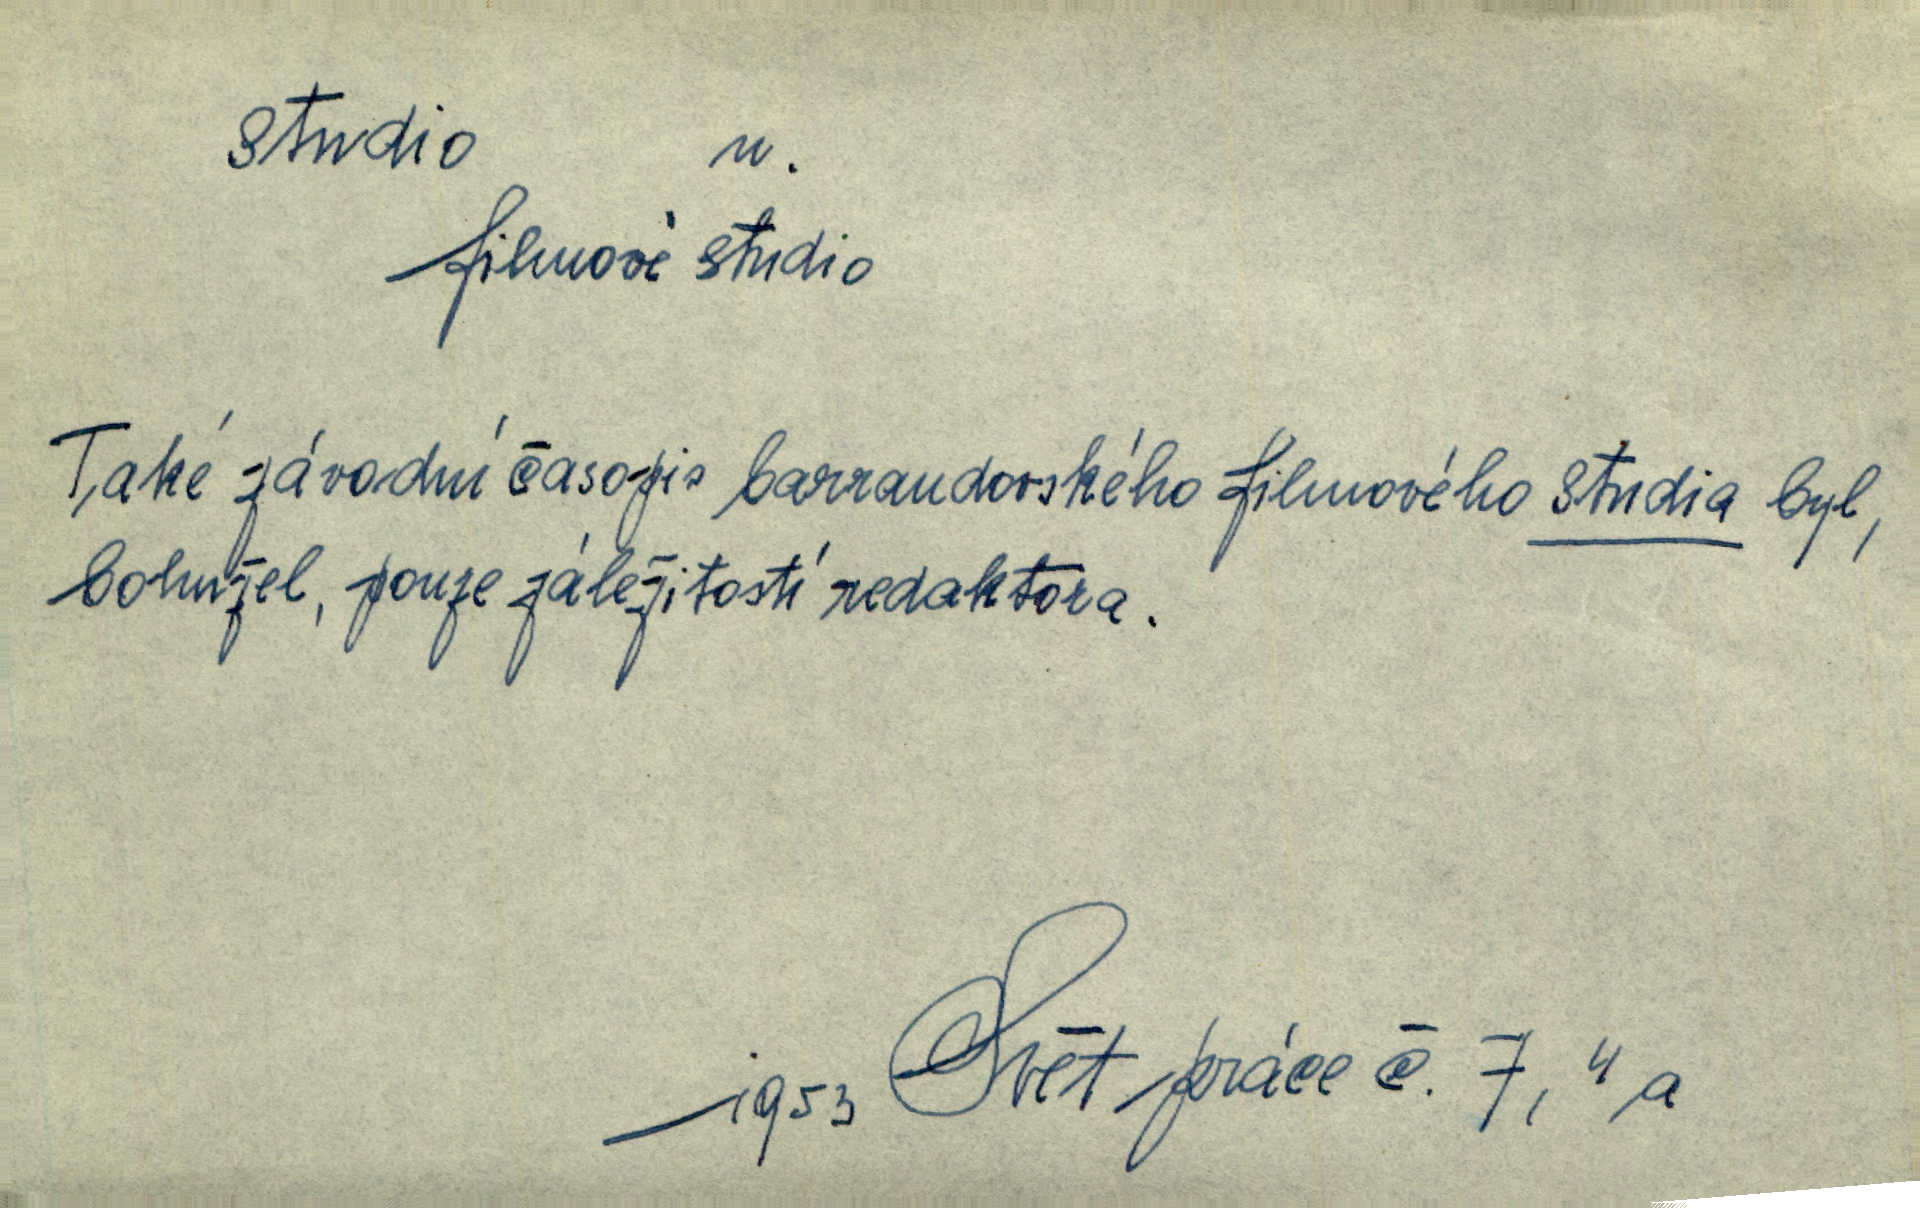 studio n.
filmové studio
Také závodní časopis barrandovského filmového studia byl,
bohužel, pouze záležitostí redaktora.
1953 Svět práce č. 7, 4 a